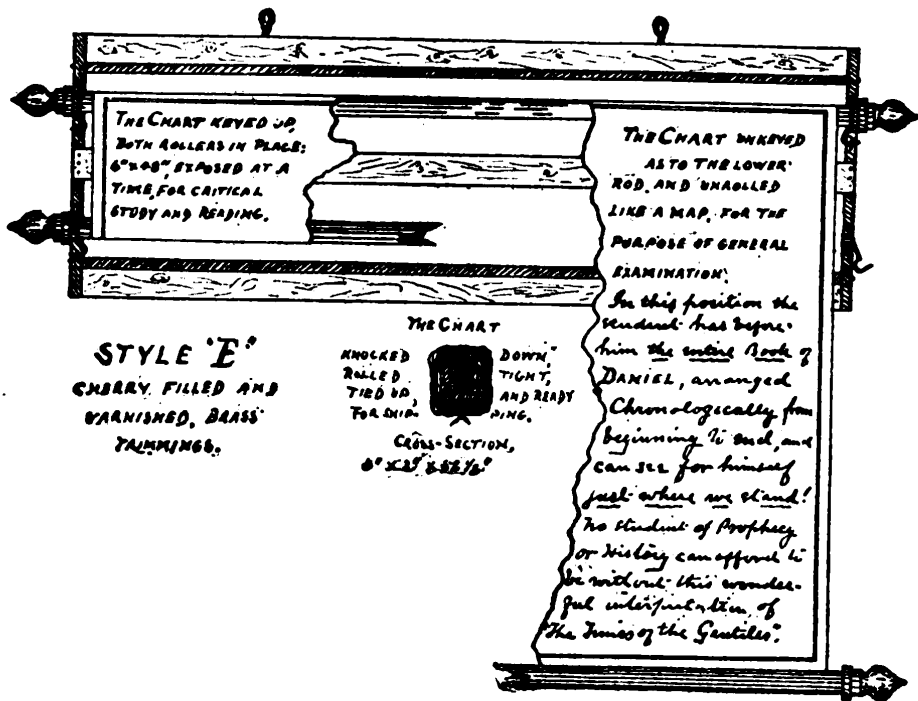 THE CHART KEYED UP,
BOTH ROLLERS IN PLACE;
EXPOSED AT A
TIME, FOR CRITICAL
STUDY AND READING.
THE CHART UNKEYED
AS TO THE LOWER
ROD, AND UNROLLED
LIKE A MAP, FOR THE
PURPOSE OF GENERAL
EXAMINATION:
In this position the
student has before
him the entire Book of
DANIEL, arranged
Chronologically from
beginning to end, and
can see for himself
just where we stand!
No student of Prophecy
or History can afford to
be without this wonder-
ful interpretation of
"The Times of the Gentiles".
STYLE "E"
CHERRY FILLED AND
VARNISHED, BRASS
TRIMMINGS.
THE CHART
KNOCKED DOWN,
ROLLED TIGHT,
TIED UP, AND READY
FOR SHIP- PING.
CROSS-SECTION,